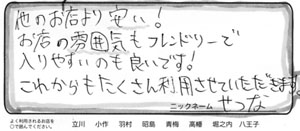 他のお店より安い！
お店の雰囲気もフレンドリーで
入りやすいのも良いです！
これからもたくさん利用させていただきます！
ニックネーム せつな
よく利用されるお店を
○で囲んでください。 立川 小作 羽村 昭島 青梅 高幡 堀之内 八王子